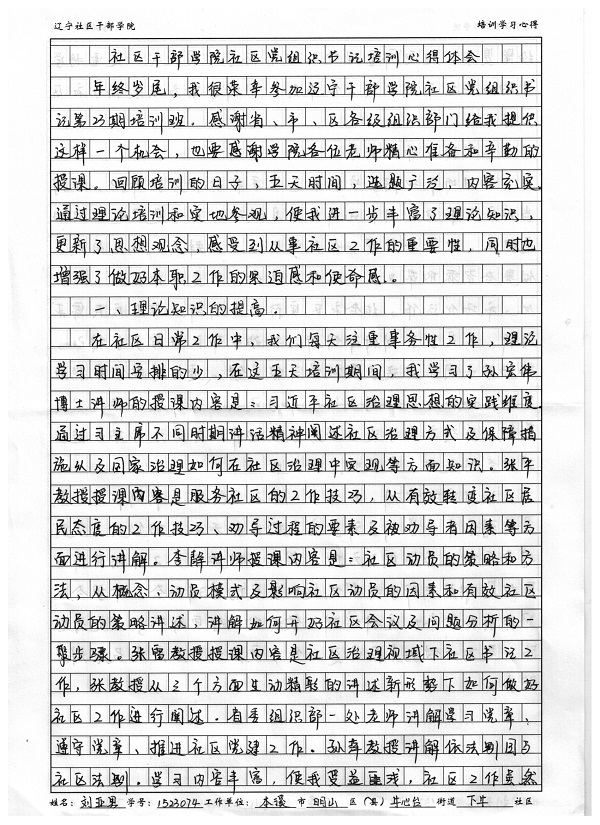 辽宁社区干部学院 培训学习心得
社区干部学院社区党组织书记培训心得体会
年终岁尾，我很荣幸参加辽宁干部学院社区党组织书
记第23期培训班，感谢省、市、区各级组织部门给我提供
这样一个机会，也要感谢学院各位老师精心准备和辛勤的
授课。回顾培训的日子，五天时间，选题广泛，内容充实，
通过理论培训和实地参观，使我进一步丰富了理论知识，
更新了思想观念，感受到从事社区工作的重要性，同时也
增强了做好本职工作的紧迫感和使命感。
一、理论知识的提高。
在社区日常工作中，我们每天注重事务性工作，理论
学习时间安排的少，在这五天培训期间，我学习了孙宏伟
博士讲师的授课内容是：习近平社区治理思想的实践维度，
通过习主席不同时期讲话精神阐述社区治理方式及保障措
施从及国家治理如何在社区治理中实现等方面知识。张平
教授授课内容是服务社区的工作技巧，从有效转变社区居
民态度的工作技巧、劝导过程的要素及被劝导者因素等方
面进行讲解。李静讲师授课内容是：社区动员的策略和方
法，从概念、动员模式及影响社区动员的因素和有效社区
动员的策略讲述，讲解如何开好社区会议及问题分析的一
般步骤。张雷教授授课内容是社区治理视域下社区书记工
作，张教授从三个方面生动精彩的讲述新形势下如何做好
社区工作进行阐述。省委组织部一处老师讲解学习党章、
遵守党章、推进社区党建工作。孙犇教授讲解依法判回与
社区法则。学习内容丰富，使我受益匪浅，社区工作虽然
姓名：刘亚男 学号：1523074 工作单位：本溪 市 明山 区（县） 牛心台 街道 下牛 社区